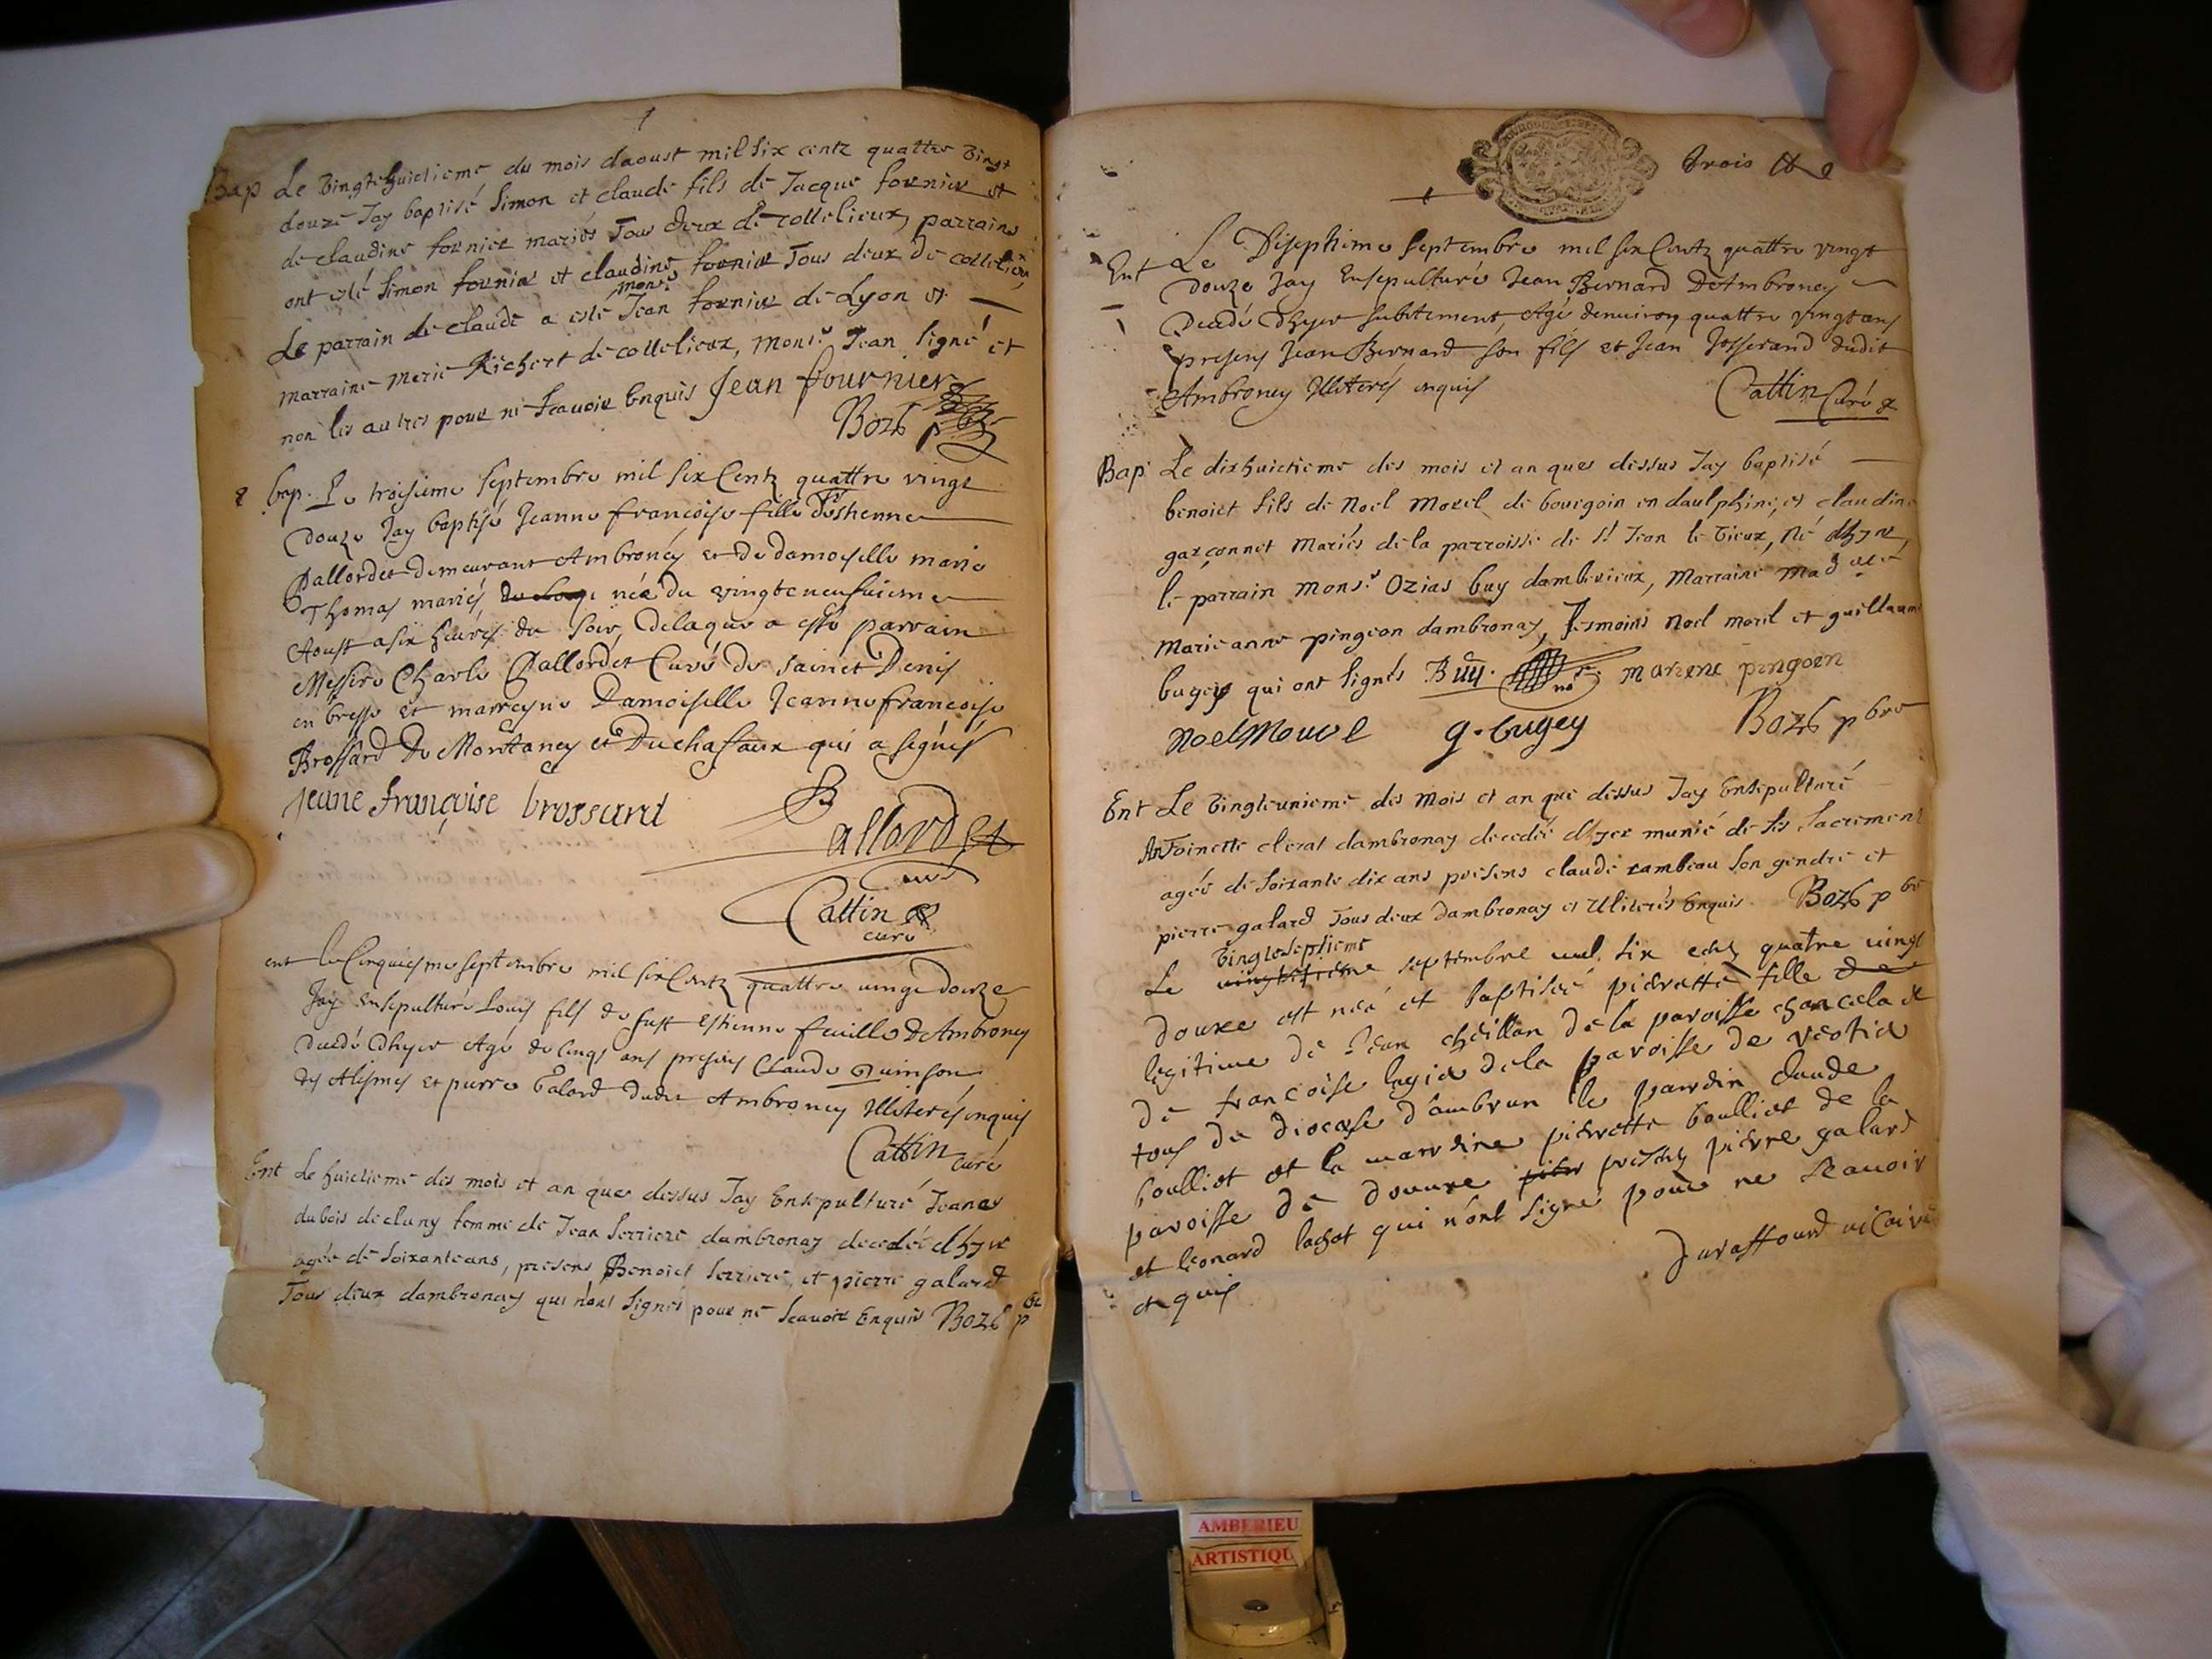 Bap Le vingthuictieme du mois daoust mil six centz quattre vingt
douze Jay baptisé Simon et claude fils de Jacque fornier et
de claudine fornier mariés Tous deux de cottelieux, parrains
ont esté Simon fornier et claudine fornier Tous deux de cottelieux
monr
Le parrain de claude a esté Jean fornier de Lyon et
marraine Merie Richert de cottelieux, Monsr Jean signé et
non les autres pour ne scavoir Enquis Jean fournier
Bozo p
8 bap. Le troisieme septembre mil six Centz quattre vingt
Douze Jay baptisé Jeanne francoise fille d'Esthenne
Pallordet demeurant Ambroney et de damoiselle marie
Thomas mariés, née du vingteneufuieme
Aoust a six heures du soir, Delaque a esté parrain
Messire Charle Pallordet Curé de sainct Denis
en bresse et marreyne Damoiselle Jeanne francoise
Brossard De Montaney et Duchasaux qui a signés
jeane françoise brossard
Pallordet
curé
Cattin
curé
ent le Cinquiesme septembre mil six Centz quattre vingt douze
Jay ensepulturé Louis fils de fust Esthenne feuille De Ambroney
Decedé Dhyer Agé de Cinqs ans presens Claude Quinson
des Alesmes et pierre Galard dudit Ambroney Illiterés enquis
Cattin curé
Ent Le huictieme des mois et an que dessus Jay Ensepulturé Jeane
dubois de cluny femme de Jean serriere dambronay decedée dhyer
agée de soixante ans, presens Benoict serriere, et pierre galard
Tous deux dambronay qui n'ont signés pour ne scavoir Enquis Bozo pbr
trois
Ent Le Diseptieme septembre mil six Centz quattre vingt
Douze Jay Ensepulturé Jean Bernard De Ambroney
Decedé Dhyer subitement, Agé denviron quattre vingt ans
presens Jean Bernard son fils et Jean Josserand dudit
Ambroney Illiterés enquis
Cattin Curé
Bap Le dixhuictieme des mois et an que dessus Jay baptisé
benoict fils de Noel Morel de bourgoin en daulphiné, et claudine
garconnet Mariés de la parroisse de St Jean le vieux, Né dhyer,
le parrain Monsr Ozias buy damberieux, Marraine
Marieanne pingeon dambronay, Tesmoins Noel morel et guillaume
bugey qui ont signés Buy. mariene pingoen
noel Mourel g. bugey Bozo pbre
Ent Le vingteunieme des Mois et an que dessus Jay Ensepulturé
Antoinette clerat dambronay decedée dhyer munie de ses sacrement
agée de soixante dix ans presens claude rambeau son gendre et
pierre galard Tous deux dambronay et Illiterés Enquis Bozo pbr
vingtseptieme
Le septembre mil six cens quatre vingt
douze est née et baptisée pierrette fille de
legitime de Jean cheillan de la paroisse chancela et
de francoise lagier dela paroisse de
tous du diocese d'ambrun le parrin claude
boulliet et la marrine pierrette boulliet de la
paroisse de douure presens pierre galard
et leonard lachat qui n'ont signé pour ne scauoir
enquis
Duraffourd uicaire
AMBERIEU
ARTISTIQU